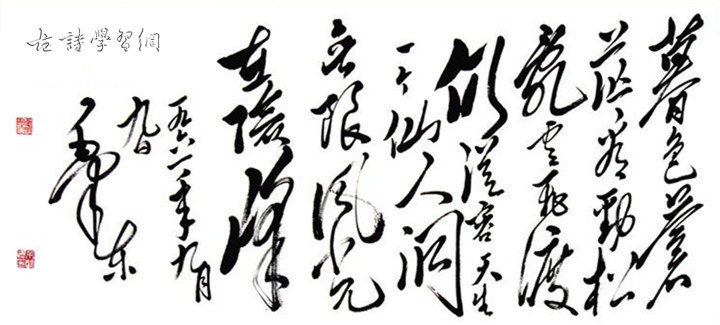 古詩學習網
暮色蒼
茫看勁松
亂云飛渡
仍從容天生
一个仙人洞
無限風光
在險峰
一九六一年九月
九日
毛澤东